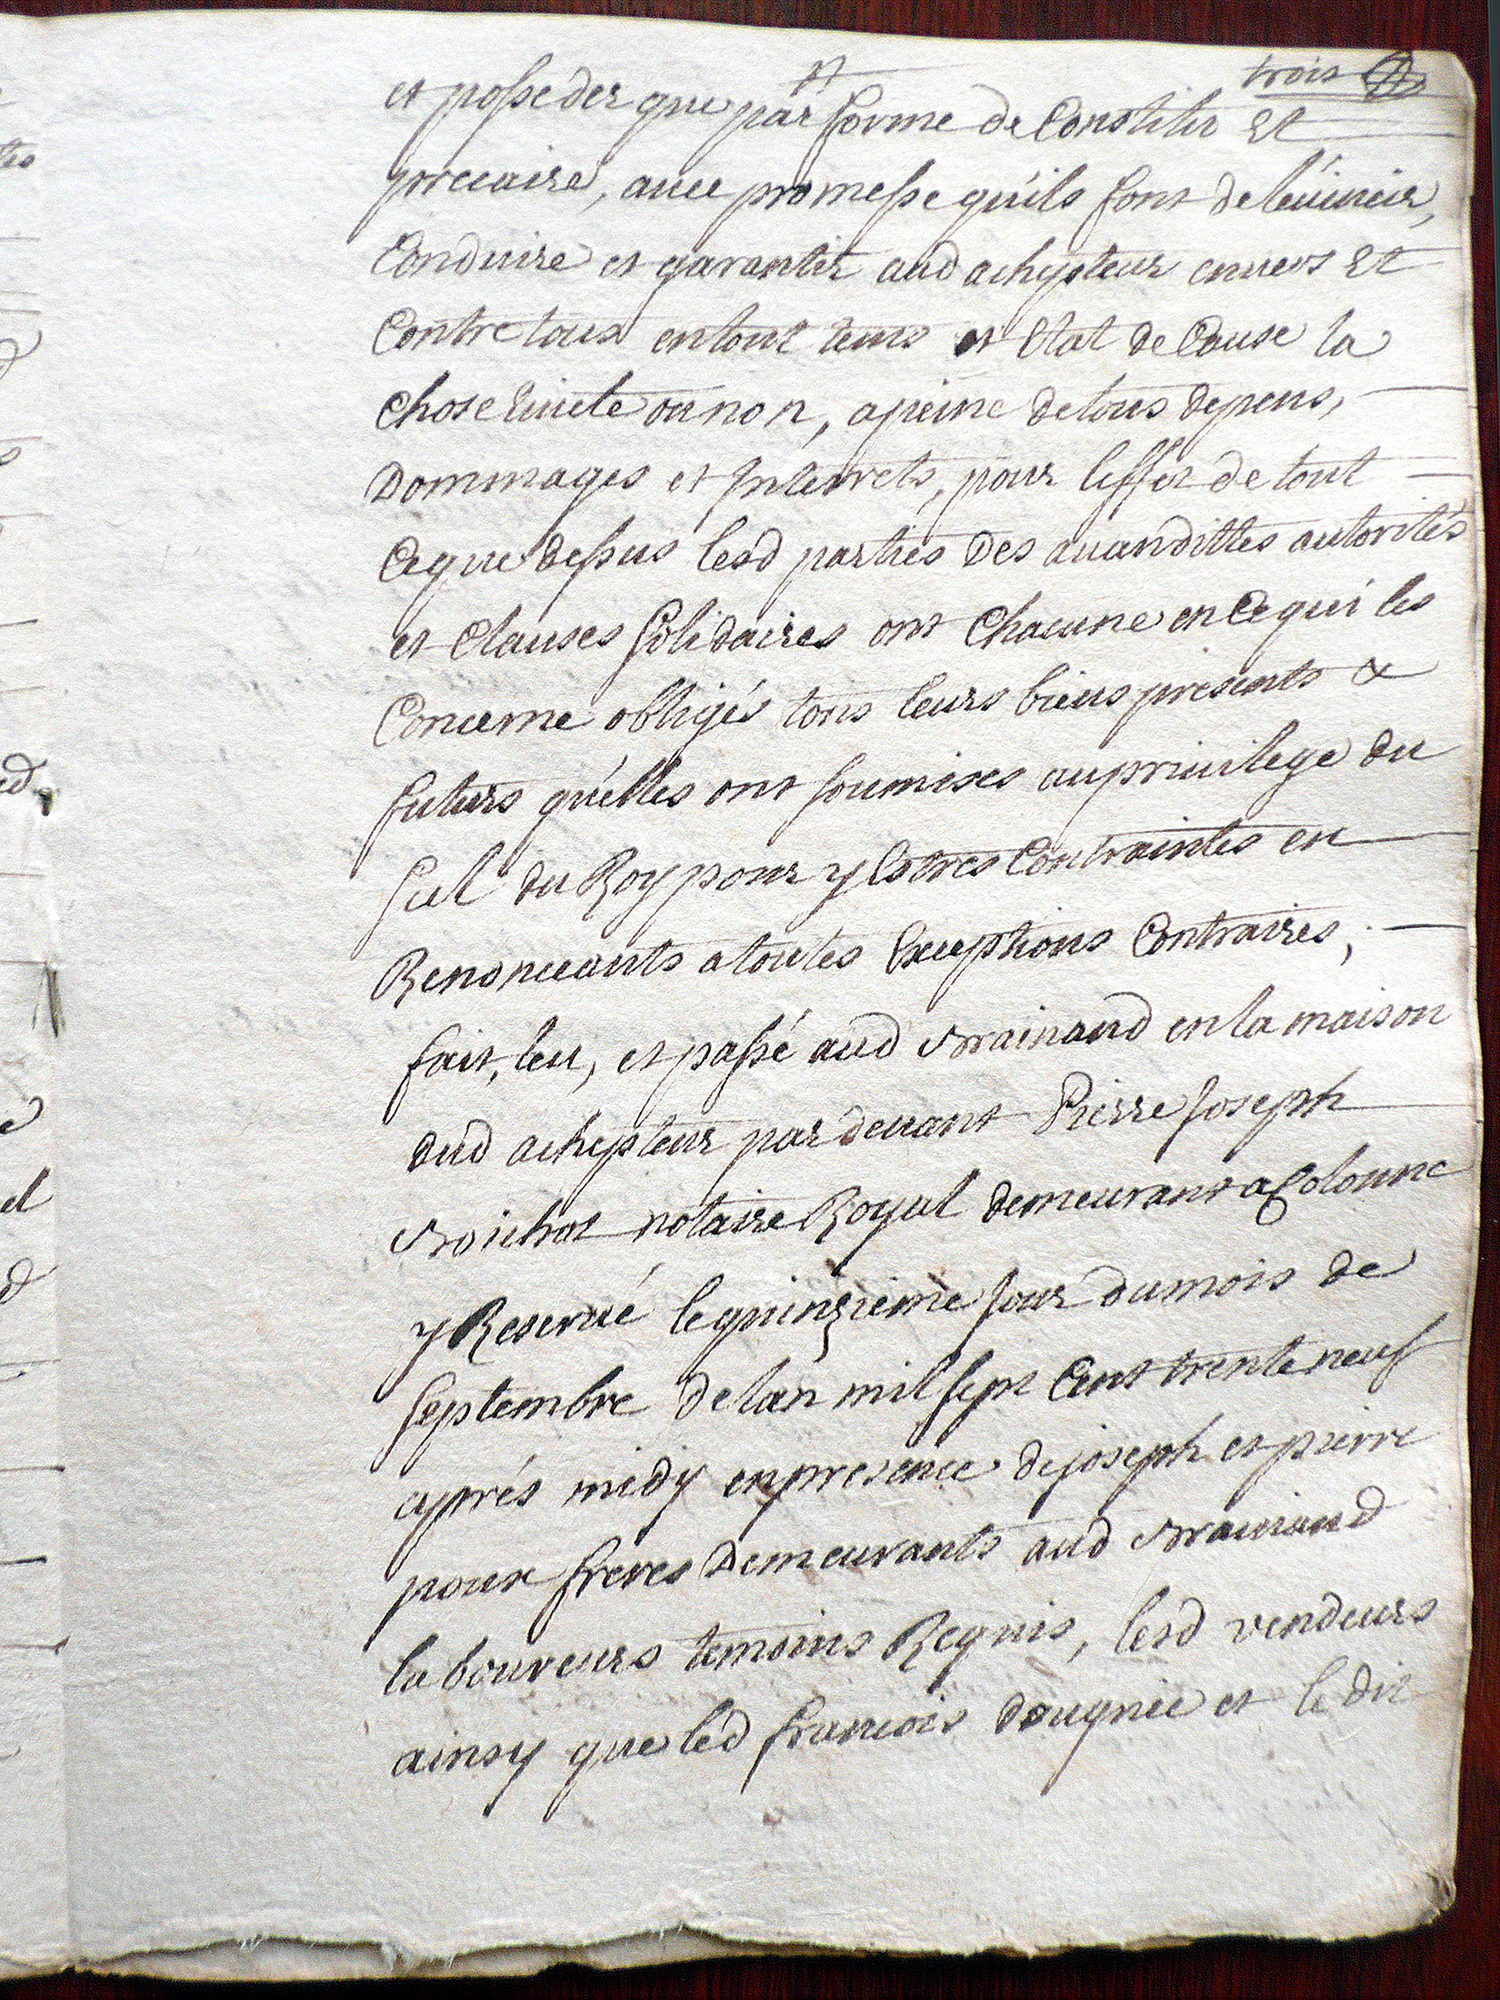 trois
et posseder que par forme de Constitu et
precaire, avec promesse qu'ils font de l'évincir,
Conduire et garantir aud achepteur envers et
Contre tous en tout tems et Etat de Cause la
chose Evicte ou non, a peine de tous depens,
Dommages et Interrets, pour l'effet de tout
Ce que dessus lesd parties des avandittes autorités
et Clauses solidaires ont Chacune en Ce qui les
Concerne obligés tous leurs biens presents &
futurs qu'elles ont soumises au privilege du
scel du Roy pour y Estres Contraintes en
Renonceants a toutes Exceptions Contraires,
fait, leu, et passé aud Brainand en la maison
dud achepteur par devant Pierre Joseph
Boichot notaire Royal demeurant a Colonne
y Reservé le quinzieme Jour du mois de
septembre de l'an mil sept Cent trente neuf
aprés midy en presence de joseph et pierre
poux freres Demeurants aud Brainand
laboureurs temoins Requis, lesd vendeurs
ainsy que led francois dougnée et le dit